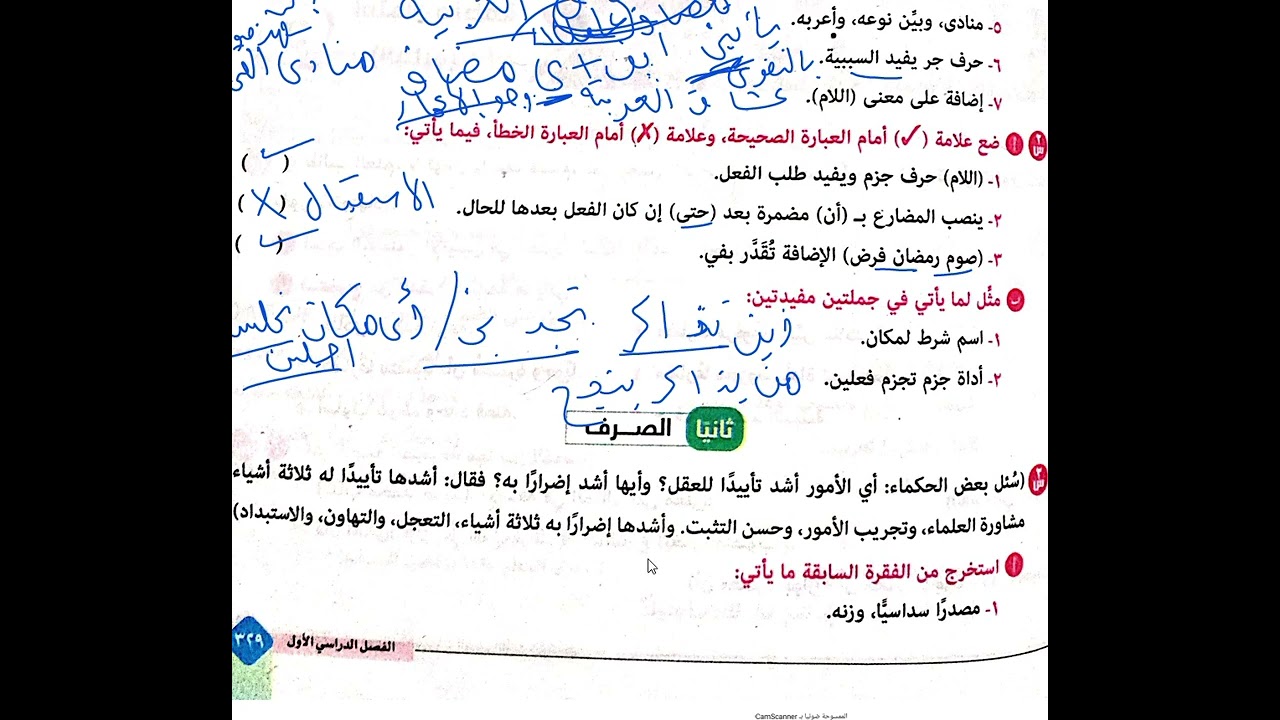 ٥- منادى، وبيِّن نوعه، وأعربه.
٦- حرف جر يفيد السببية.
٧- إضافة على معنى (اللام).
س٢ أ ضع علامة (✓) أمام العبارة الصحيحة، وعلامة (✗) أمام العبارة الخطأ، فيما يأتي:
١- (اللام) حرف جزم ويفيد طلب الفعل. (✓)
٢- ينصب المضارع بـ (أن) مضمرة بعد (حتى) إن كان الفعل بعدها للحال. الاستقبال (X)
٣- (صوم رمضان فرض) الإضافة تُقَدَّر بفي. (✓)
ب مثِّل لما يأتي في جملتين مفيدتين:
١- اسم شرط لمكان. أي مكان تجلس أجلس
٢- أداة جزم تجزم فعلين. من يذاكر ينجح
ثانيًا الصـرف
س٣ (سُئل بعض الحكماء: أي الأمور أشد تأييدًا للعقل؟ وأيها أشد إضرارًا به؟ فقال: أشدها تأييدًا له ثلاثة أشياء
مشاورة العلماء، وتجريب الأمور، وحسن التثبت. وأشدها إضرارًا به ثلاثة أشياء، التعجل، والتهاون، والاستبداد)
أ استخرج من الفقرة السابقة ما يأتي:
١- مصدرًا سداسيًّا، وزنه.
٣٢٩ الفصل الدراسي الأول
الممسوحة ضوئيا بـ CamScanner